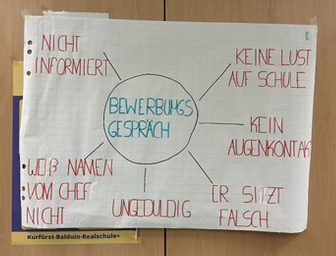 NICHT
INFORMIERT
KEINE LUST
AUF SCHULE
BEWERBUNGS
GESPRÄCH
KEIN
AUGENKONTAKT
WEIß NAMEN
VOM CHEF
NICHT
UNGEDULDIG
ER SITZT
FALSCH
Kurfürst-Balduin-Realschule+